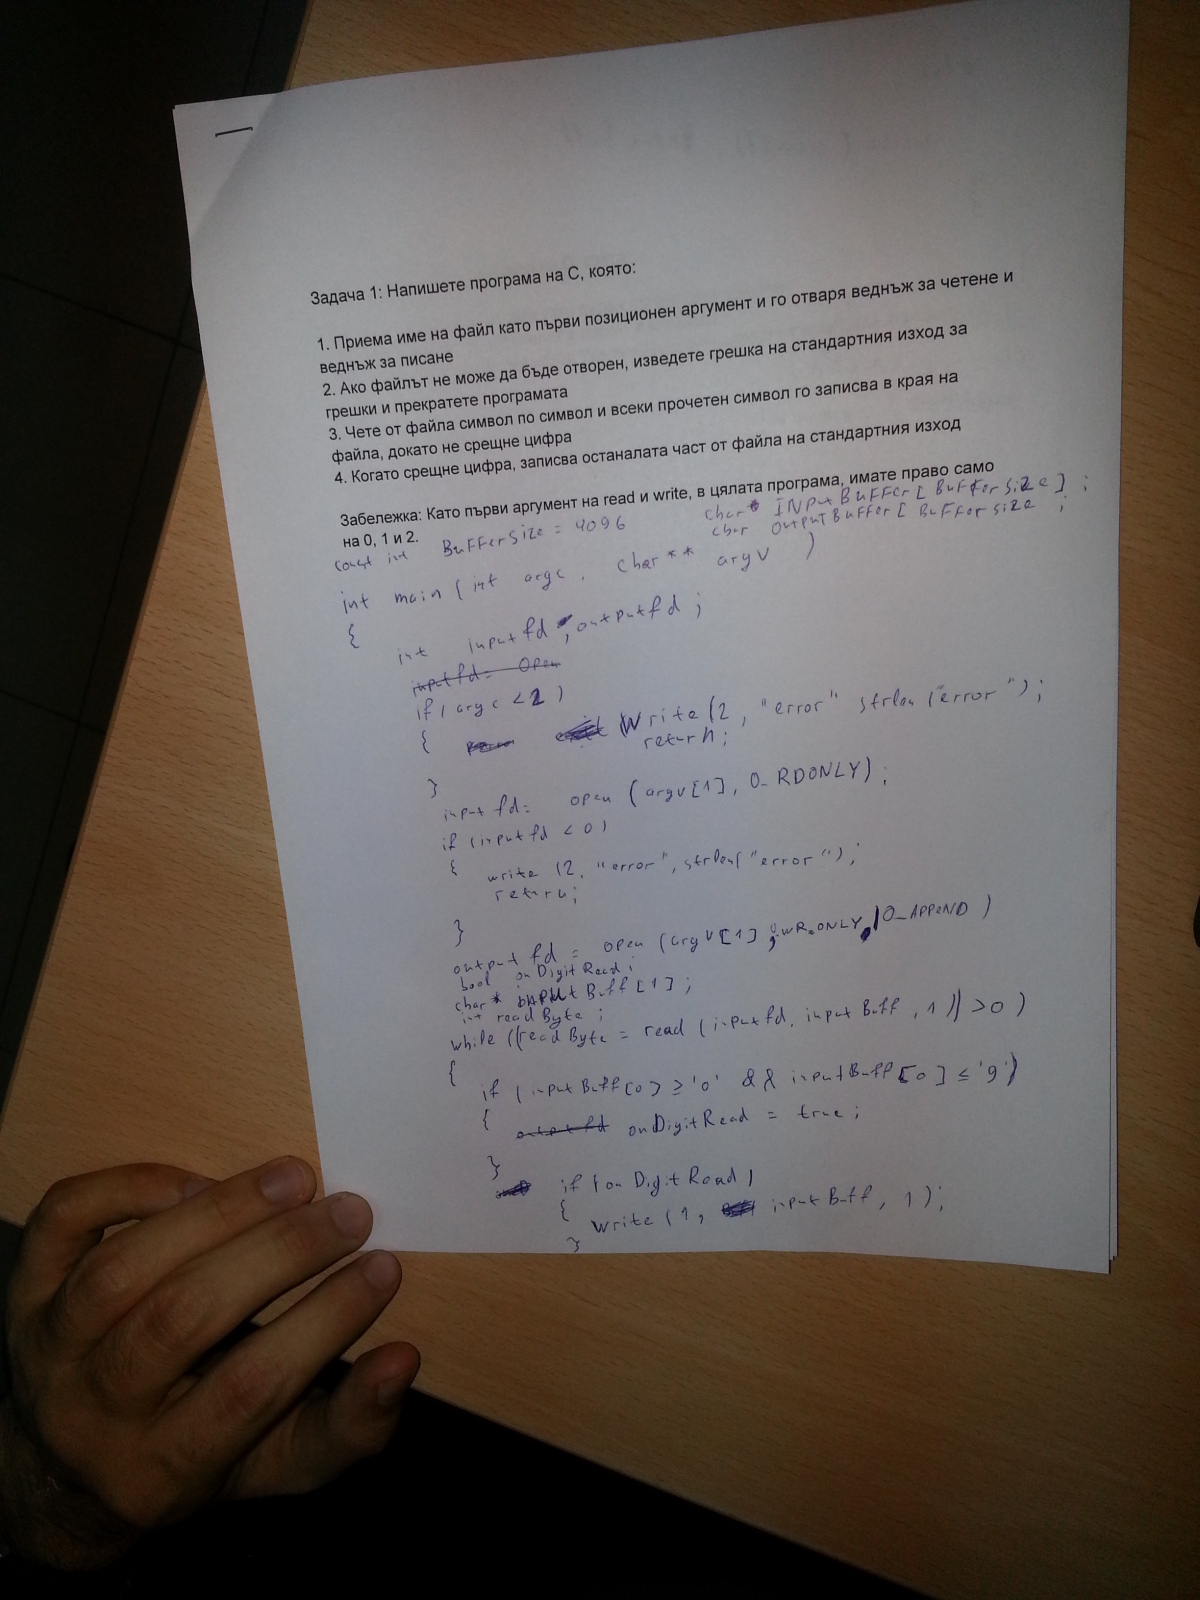 Задача 1: Напишете програма на С, която:
1. Приема име на файл като първи позиционен аргумент и го отваря веднъж за четене и
веднъж за писане
2. Ако файлът не може да бъде отворен, изведете грешка на стандартния изход за
грешки и прекратете програмата
3. Чете от файла символ по символ и всеки прочетен символ го записва в края на
файла, докато не срещне цифра
4. Когато срещне цифра, записва останалата част от файла на стандартния изход
Забележка: Като първи аргумент на read и write, в цялата програма, имате право само
на 0, 1 и 2.
const int BufferSize = 4096
char* INPutBuFFer[BuFFersize];
char outputBuffer[BuFFersize ;
int main (int argc, char** argv )
{
int inputfd , outputfd ;
inputfd= Open
if ( argc < 2 )
{ Write (2 , "error" strlen ("error");
return;
}
inputfd= open (argv[1], O_RDONLY);
if (inputfd < 0)
{ write (2, "error", strlen("error");
return;
}
outputfd = open (argv[1] , O_WR_ONLY | O_APPeND )
bool onDigitRead ;
char* Buff [1] ;
int readByte ;
while ((readByte = read (inputfd, inputBuff , 1 )) > 0 )
{
if (inputBuff[0] ≥ '0' && inputBuff[0] ≤ '9')
{ outputfd onDigitRead = true ;
}
if (onDigitRead)
{
write (1, inputBuff, 1);
}